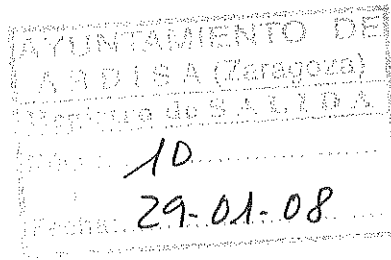 AYUNTAMIENTO DE
ARDISA (Zaragoza)
Registro de SALIDA
Núm.: 10
Fecha: 29-01-08